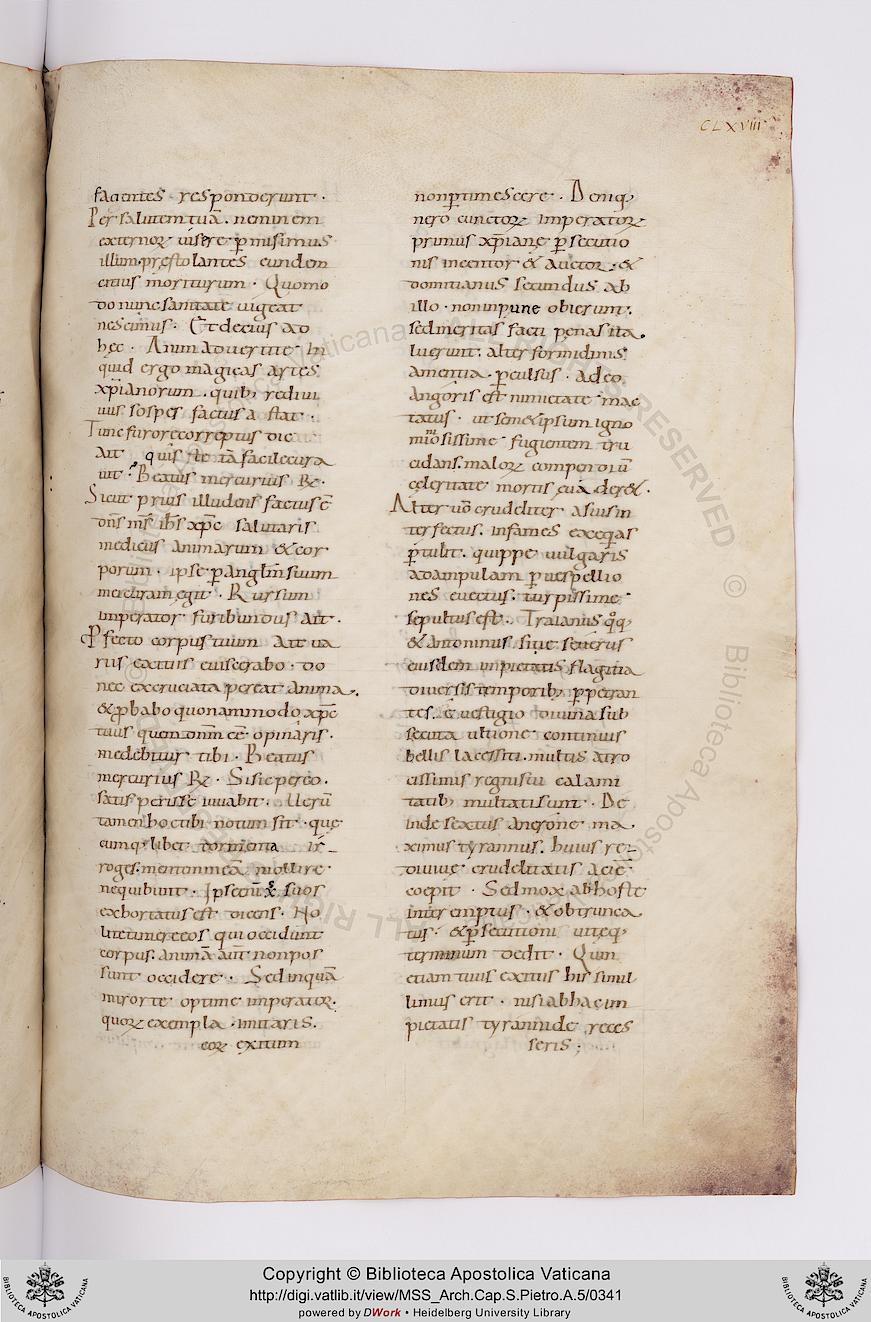 CLXVIII
facientes responderunt.
Per salutem tuā. neminem
externoꝝ uisere ꝑmisimus
illum. prestolantes eundem
citius moriturum. Quomo
do nunc sanitate uigeat
nescimus. Et decius ad
hec. Animaduertite in
quid ergo magicas artes
xp̄ianorum. quibꝫ rediui
uus sospes factus astat.
Tunc furore correptus die
ait. quis te tā facile cura
uit. Beatus mercurius R̄.
Sicut prius illudens factus ē
dn̄s nr̄ ih̄s xp̄c salutaris
medicus animarum & cor
porum. ipse ꝑ anglm̄ suum
me curam egit. Rursum
imperator furibundus ait.
Ꝓfecto corpus tuum
rius exitiis euiscerabo. do
nec excruciata pereat anima.
& ꝓbabo quonammodo xp̄c
tuus quem dnm̄ eē opinaris.
medebitur tibi. Beatus
mercurius R̄. Si sic pereo.
satis perisse iuuabit. Uerū
tamen hoc tibi notum sit. que
cumqꝫ libet tormenta ir
roges. mentem meā mollire
nequibunt. Ipse enī xp̄c suos
exhortatus est dicens. No
lite timere eos qui occidunt
corpus. animā aut̄ non pos
sunt occidere. Sed inquā
miror te optime imperator.
quoꝝ exempla imitaris.
eoꝝ exitum
non ꝑtimescere. Deniqꝫ
nero cunctoꝝ imperatoꝝ
primus xp̄iane ꝑsecutio
nis incentor & auctor. &
domitianus secundus ab
illo. non inpune obierunt.
sed meritas facti penas ita
luerunt. alter formidinis
amentia. ꝑculsus. adeo
angoris est nimietate mac
tatus. ut semetipsum igno
miniosissime fugientem tru
cidans. maloꝝ compendiū
celeritate mortis
Alter uō crudeliter a suis in
terfectus. infames exequias
ꝑtulit. quippe uulgaris
ad ampulam ꝑ uespellio
nes euectus. turpissime
sepultus est. Traianus q̄qꝫ
& antoninus siue seuerus
eiusdem impietatis flagitia
diuersis temporibꝫ ꝑpetran
tes. e uestigio diuina sub
secuta ultione continuis
bellis lacessiti. multis atro
cissimis regni sui calami
tatibꝫ multati sunt. De
inde sextus a nerone ma
ximus tyrannus. huius re
diuiue crudelitatis aciē
coepit. Sed mox ab hoste
interemptus. & obtrunca
tus. & ꝑsecutioni uiteqꝫ
terminum dedit. Qum
etiam tuus exitus his simil
limus erit. nisi ab hac im
pietatis tyrannide reces
seris.
Copyright © Biblioteca Apostolica Vaticana
http://digi.vatlib.it/view/MSS_Arch.Cap.S.Pietro.A.5/0341
powered by DWork • Heidelberg University Library